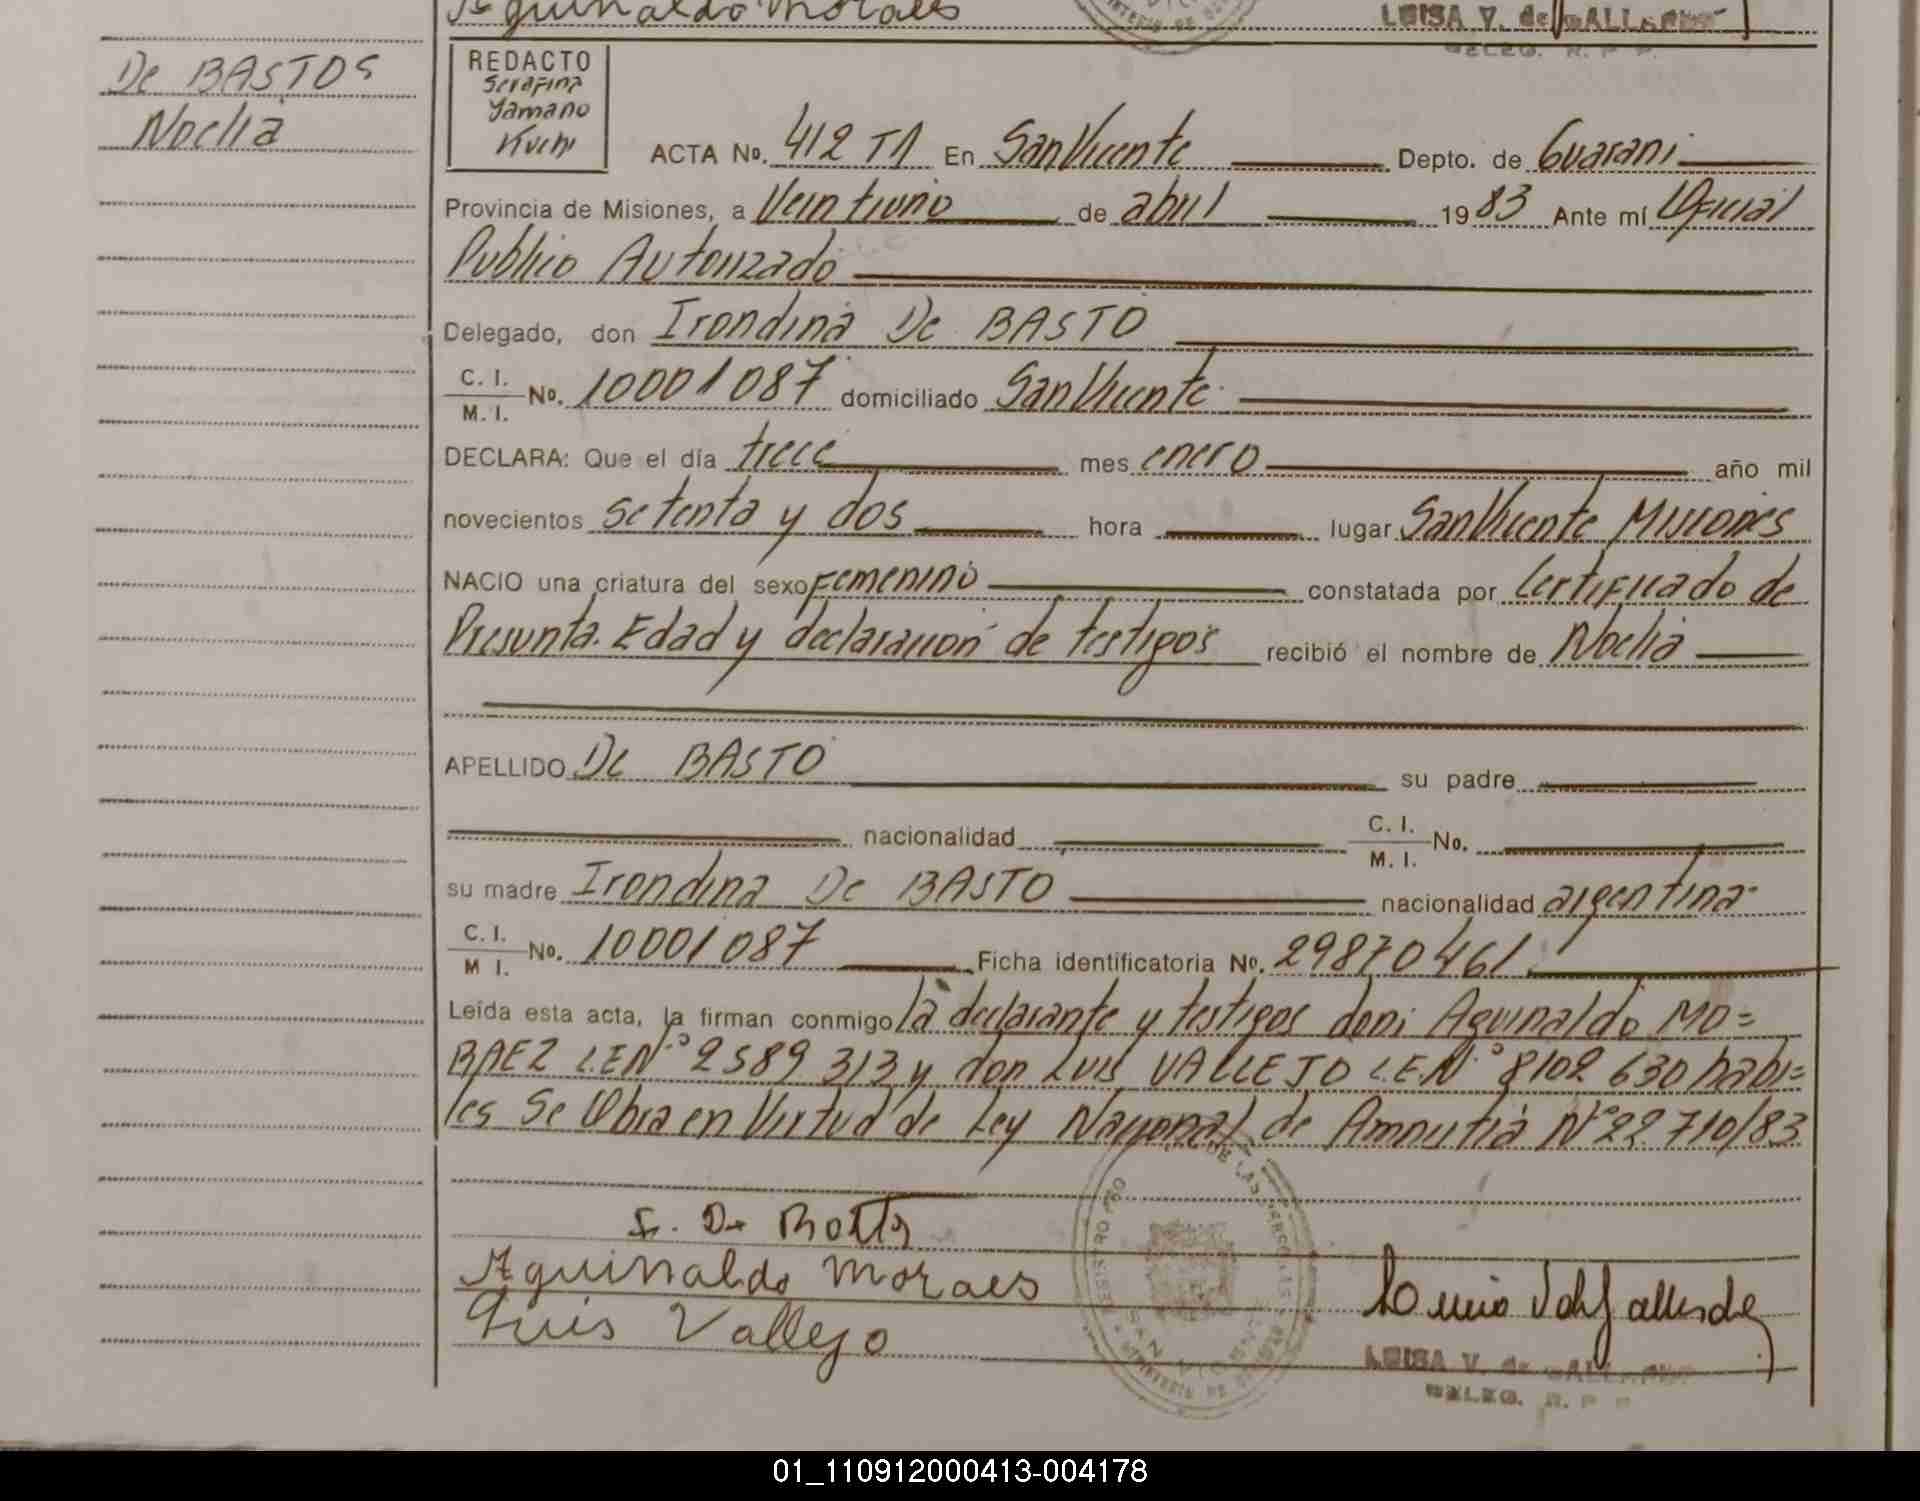 Aguinaldo Moraes
LUISA V. de GALLARDO
DELEG. R. P. P.
De BASTOS
Noelia
REDACTO
Serafina
Yamano
Kuchi
ACTA No. 412 T1 En San Vicente Depto. de Guarani
Provincia de Misiones, a Veintiuno de abril 1983 Ante mí Oficial
Publico Autorizado
Delegado, don Irondina De BASTO
C. I.
M. I. No. 10001087 domiciliado San Vicente
DECLARA: Que el día trece mes enero año mil
novecientos setenta y dos hora lugar San Vicente Misiones
NACIO una criatura del sexo Femenino constatada por Certificado de
Presunta. Edad y declaracion de testigos recibió el nombre de Noelia
APELLIDO De BASTO su padre
nacionalidad C. I.
M. I. No.
su madre Irondina De BASTO nacionalidad argentina
C. I.
M I. No. 10001087 Ficha identificatoria No. 29870461
Leída esta acta, la firman conmigo la declarante y testigos don: Aguinaldo MO=
RAEZ L.E.N° 2589 313 y don Luis VALLEJO L.E.N° 8102 630 habi=
les Se Obra en Virtud de Ley Nacional de Amnistia N° 22 710/83
I. De
Aguinaldo Moraes
Luis Vallejo
REGISTRO PRO DE LAS PERSONAS
SAN VICENTE
MINISTERIO DE GOBIERNO
LUISA V. de GALLARDO
DELEG. R. P. P.
01_110912000413-004178